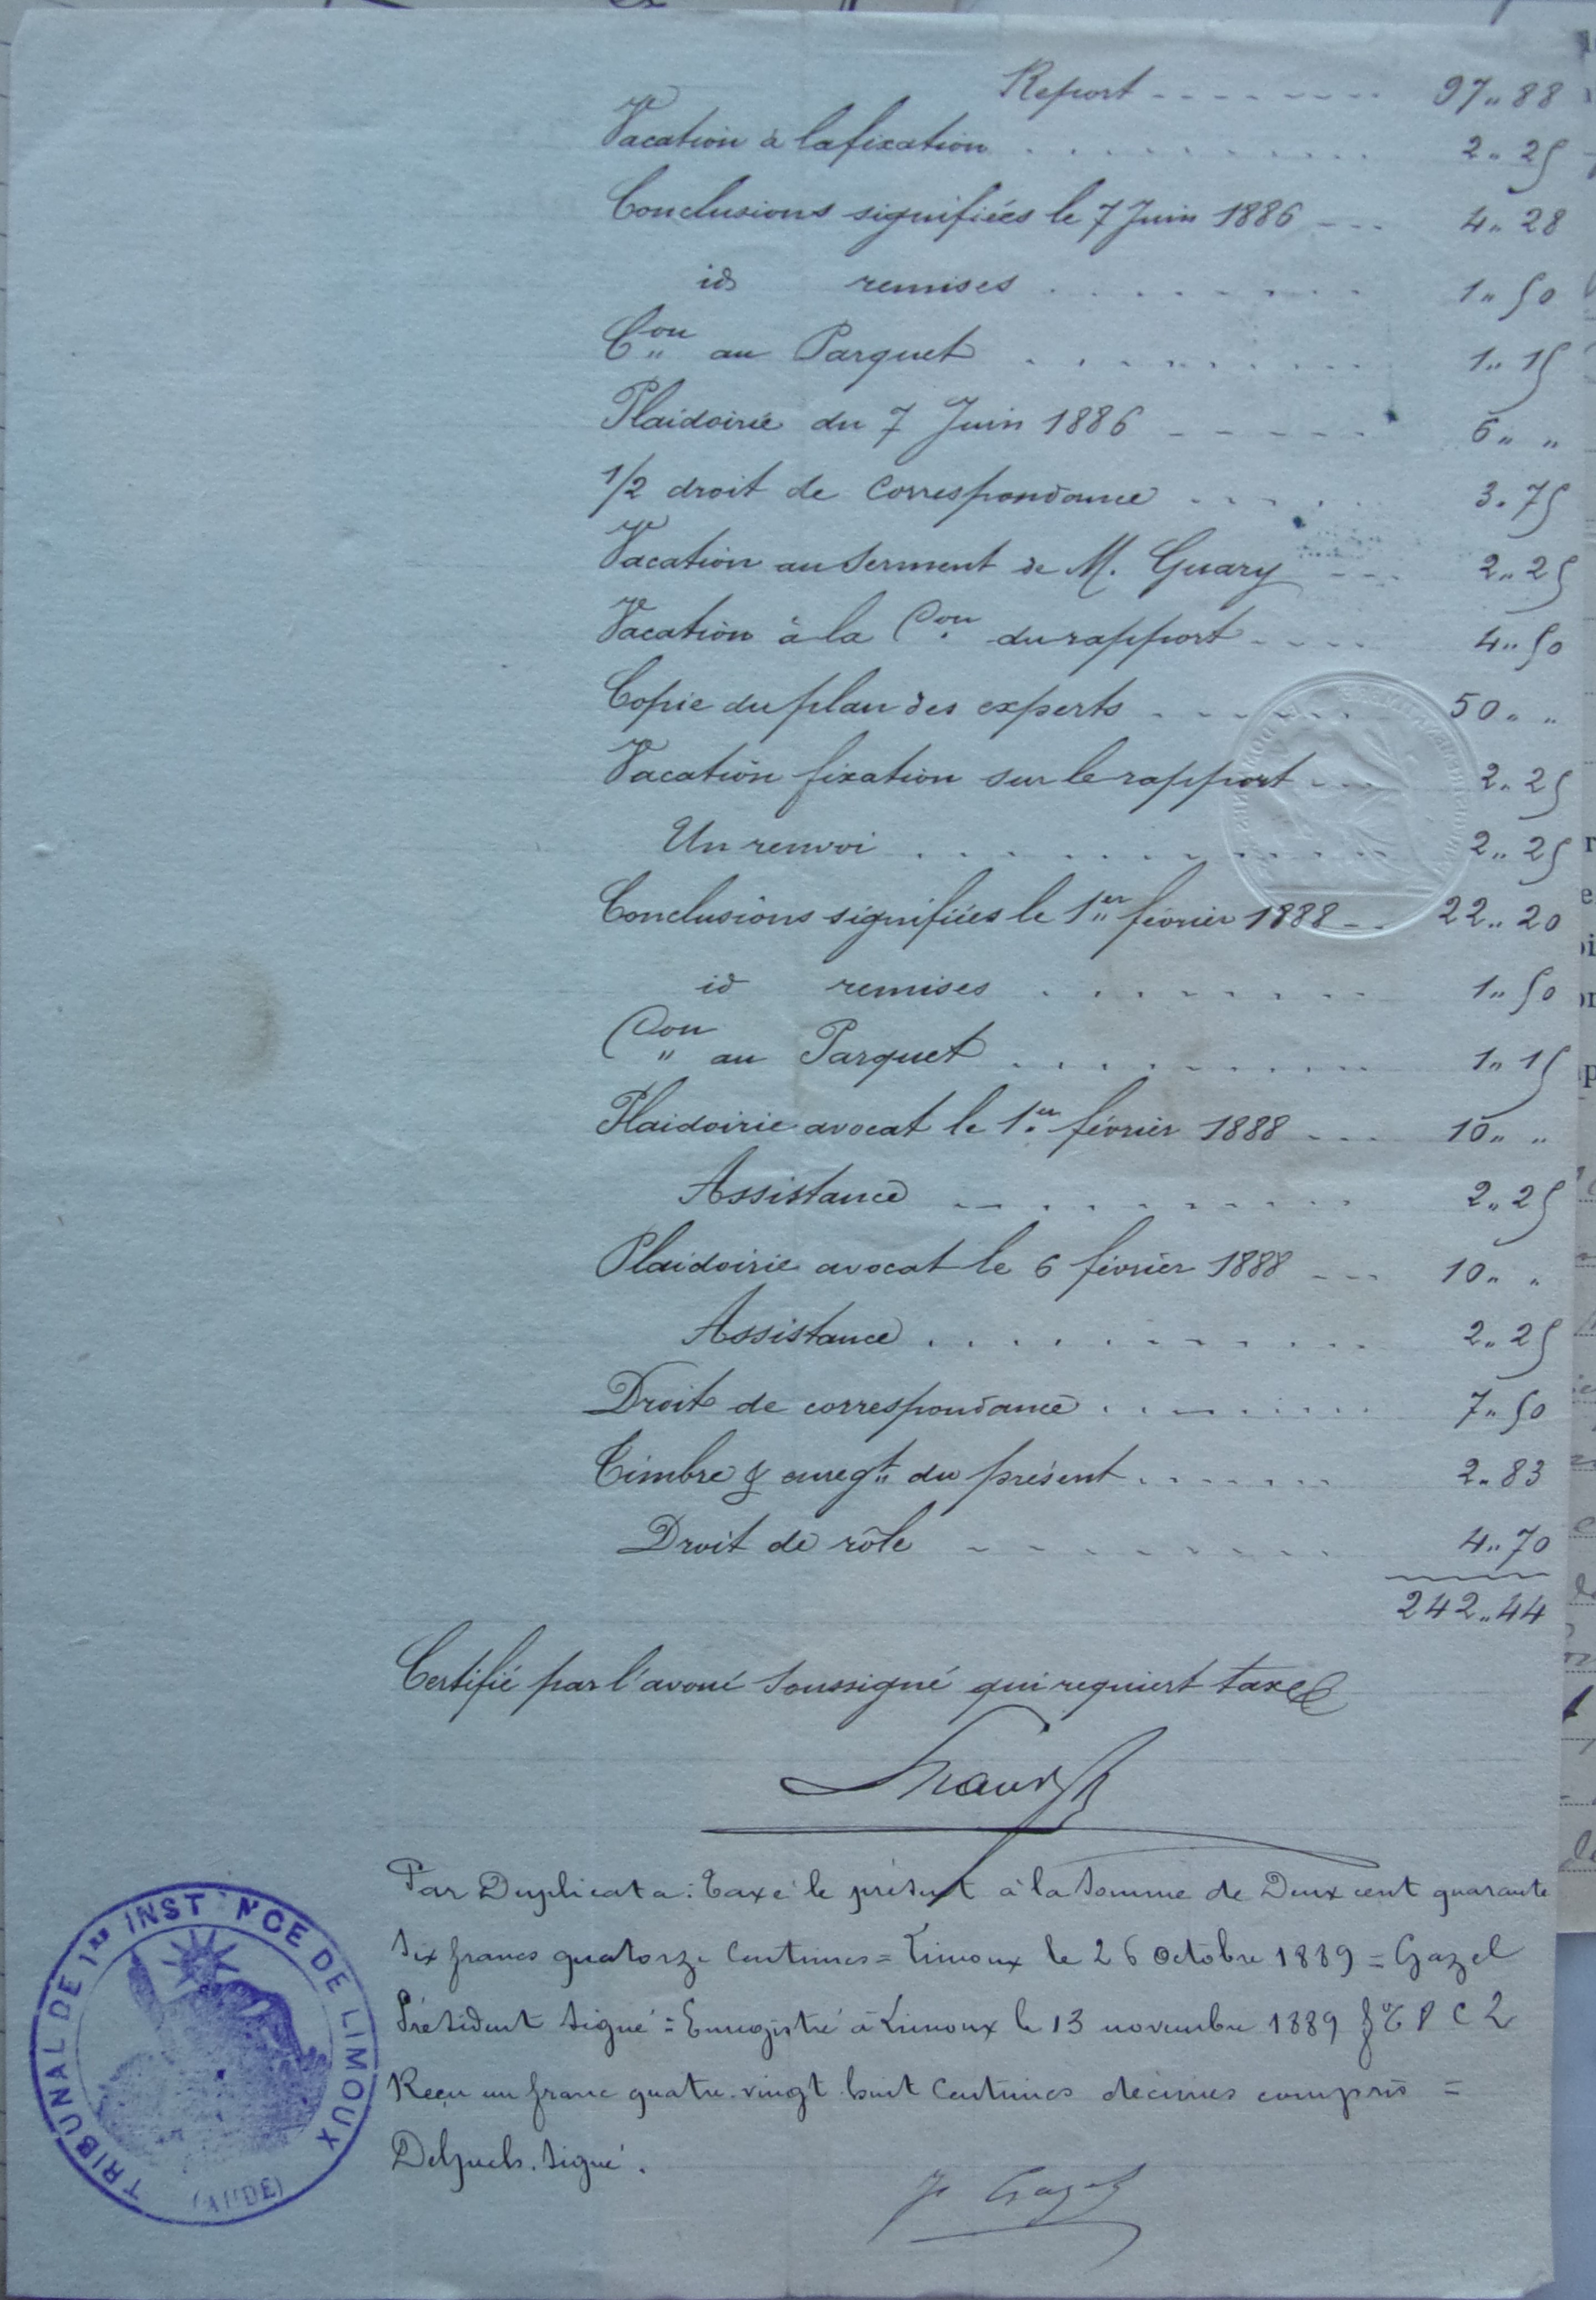 Report - - - - - - - - 97„88
Vacation à la fixation . . . . . . . . . . . 2„25
Conclusions signifiées le 7 Juin 1886 - - - 4„28
id remises . . . . . . . . . 1„50
Con„ au Parquet . . . . . . . . . 1„15
Plaidoirie du 7 Juin 1886 - - - - - 6„ „
1/2 droit de correspondance . . . . . 3.75
Vacation au serment de M. Guary - - - 2„25
Vacation à la Con. du rapport - - - - 4„50
Copie du plan des experts . - - - - - 50„ „
Vacation fixation sur le rapport - - - 2„25
Un renvoi . . . . . . . . . . . 2„25
Conclusions signifiées le 1er„ février 1888 - - 22„20
id remises . . . . . . . . . 1„50
Con„ au Parquet . . . . . . . . . . 1„15
Plaidoirie avocat le 1er. février 1888 - - - 10„ „
Assistance - . . . . . . . . . 2„25
Plaidoirie avocat le 6 février 1888 - - - 10„ „
Assistance . . . . . . . . . . . 2„25
Droit de correspondance . . . . . . . . 7„50
Timbre & enregt„ du présent . . . . . . . 2„83
Droit de rôle - - - - - - - - - 4„70
242„44
Certifié par l'avoué soussigné qui requiert taxe
Par Duplicata : Taxé le présent à la somme de Deux cent quarante
six francs quatorze centimes = Limoux le 26 Octobre 1889 = Gazel
Président signé = Enregistré à Limoux le 13 novembre 1889 C 2
Reçu un franc quatre-vingt huit centimes décimes compris =
signé.
J. Gazel
TRIBUNAL DE 1re INSTANCE DE LIMOUX
(AUDE)